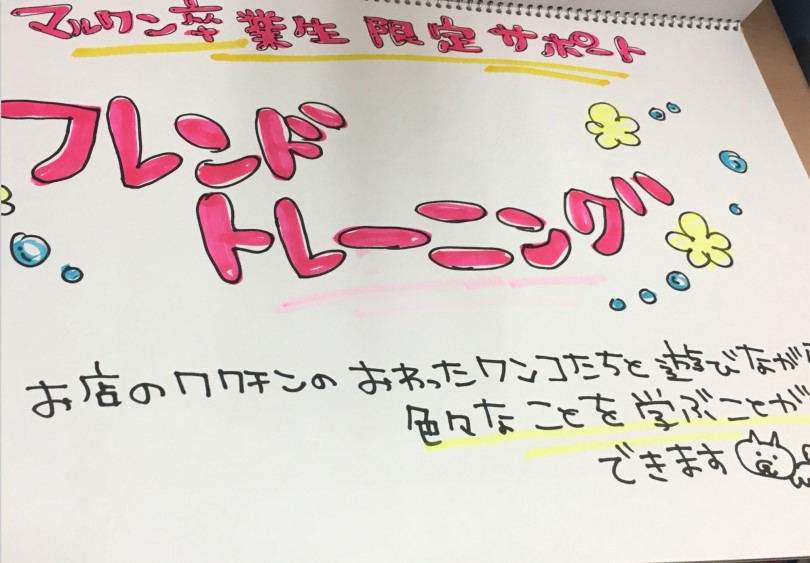 マルワン卒業生限定サポート
フレンド
トレーニング
お店のワクチンのおわったワンコたちと遊びながら
色々なことを学ぶことが
できます